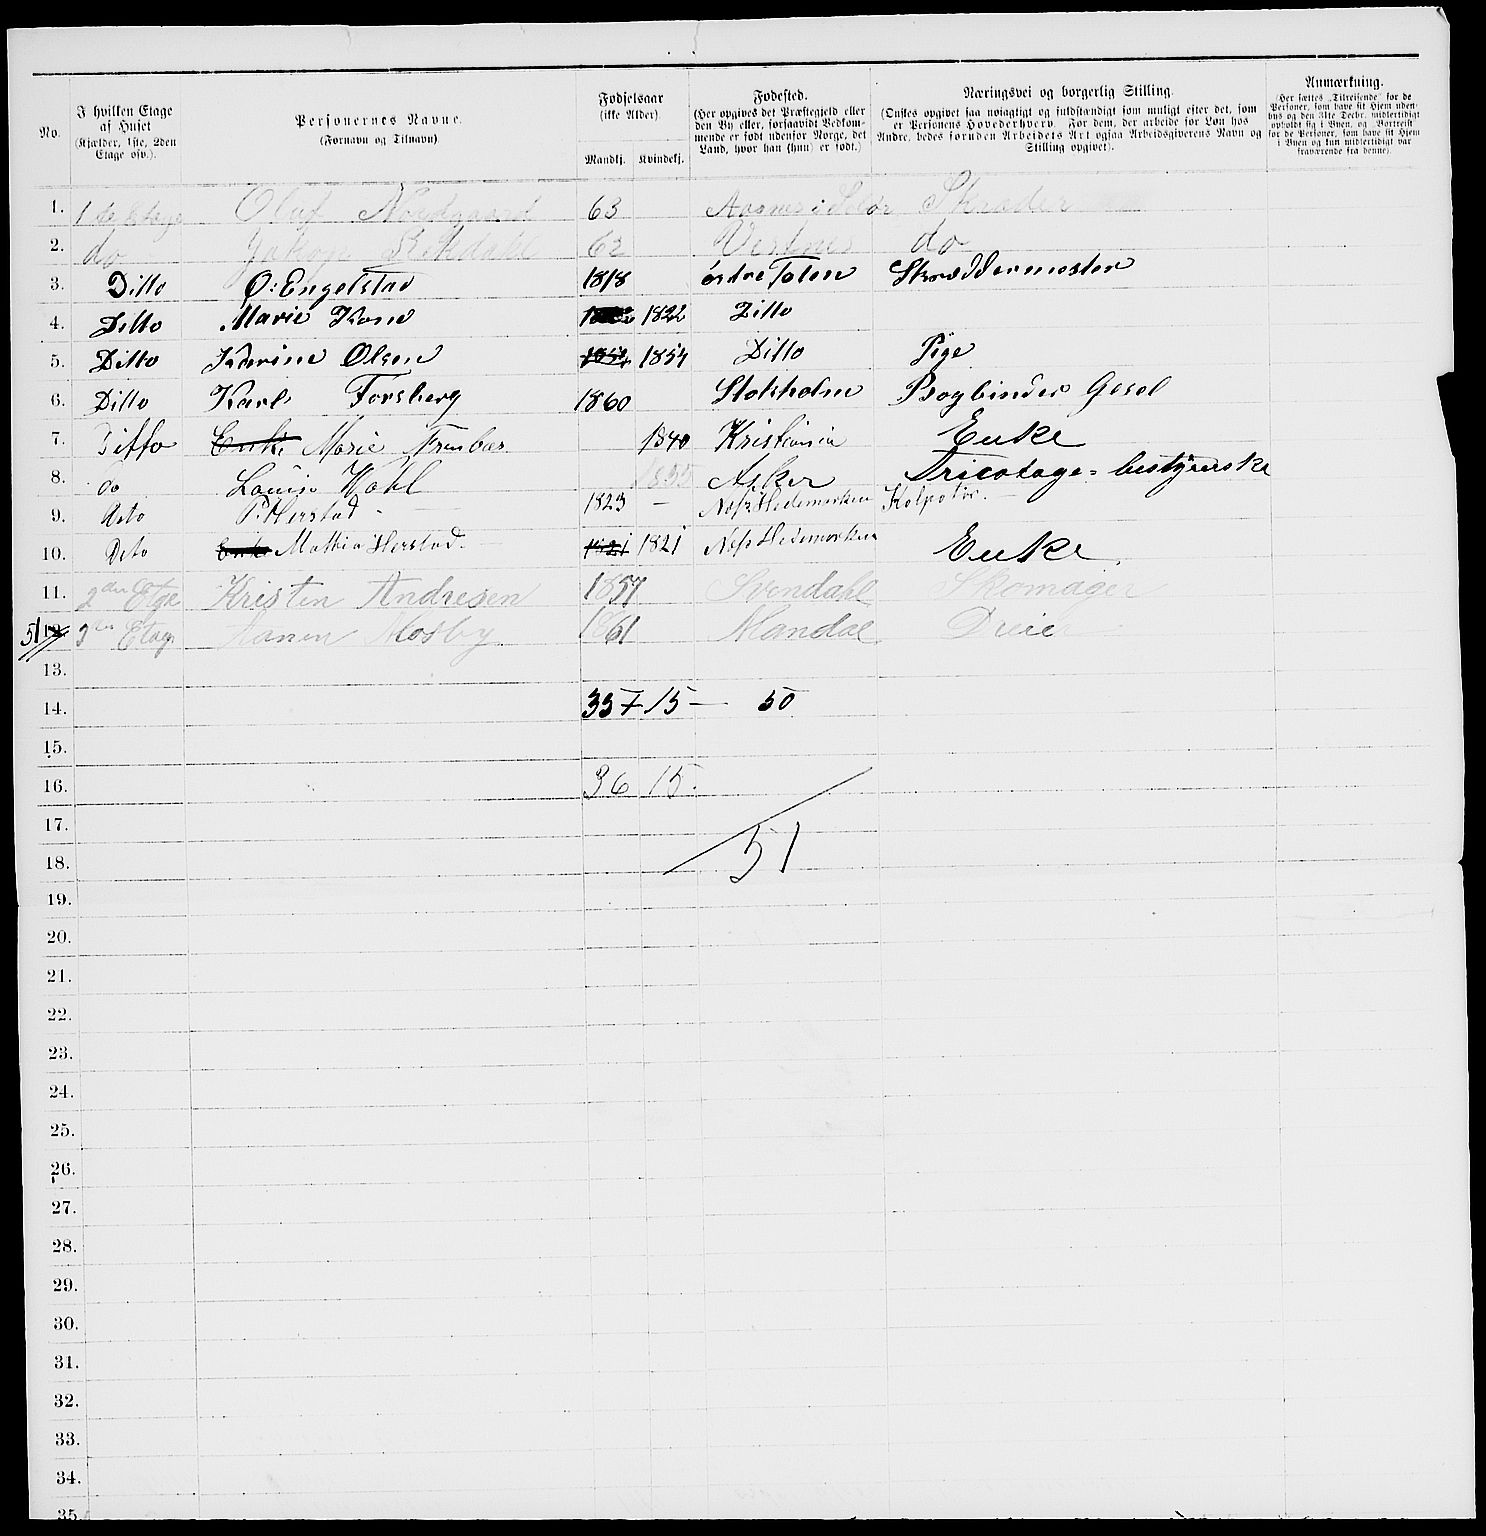 No.
I hvilken Etage af Huset
(Kjælder, 1ste, 2den Etage osv.).
Personernes Navne.
(Fornavn og Tilnavn)
Fødselsaar
(ikke Alder)
Mandkj. Kvindekj.
Fødested.
(Her opgives det Præstegjeld eller
den By eller, forsaavidt Vedkom-
mende er født udenfor Norge, det
Land, hvor han (hun) er født.)
Næringsvei og borgerlig Stilling.
(Ønskes opgivet saa nøiagtigt og fuldstændigt som muligt efter det, som
er Personens Hovederhverv. For dem, der arbeide for Løn hos
Andre, bedes foruden Arbeidets Art ogsaa Arbeidsgiverens Navn og
Stilling opgivet).
Anmærkning.
(Her sættes „Tilreisende" for de
Personer, som have sit Hjem uden-
bys og den 31te Decbr. midlertidigt
opholdt sig i Byen, og Bortreist
for de Personer, som have sit Hjem
i Byen og kun midlertidigt var
fraværende fra denne).
1. 1 ste Etage Oluf Nordgaard 63 Aasnes i Solør Skræder
2. do Jakop 62 Vestnes do
3. Ditto O: Engelstad 1818 östre Toten Skræddermester
4. Ditto Marie Kone 1822 Ditto
5. Ditto Karine Olsen 1854 1854 Ditto Pige
6. Ditto Karl Forsberg 1860 Stokholm Bogbinder Gesel
7. Ditto Enke Marie 1840 Kristiania Enke
8. do Louise Wahl 1855 Asker Tricotage=bestyrerske
9. Deto P. Herstad - 1823 — Næs Hedemarken Kolpotør. —
10. Deto Enke Mathia Herstad. 1821 1821 Næs Hedemarken Enke
11. 2den Etge Kristen Andresen 1857 Svendahl Skomager
51 12. 3 Etag Hanen Mosby 1861 Mandal Dreie
13.
14. 35 + 15 — 50
15.
16. 36 15.
17.
18. 51
19.
20.
21.
22.
23.
24.
25.
26.
27.
28.
29.
30.
31.
32.
33.
34.
35.